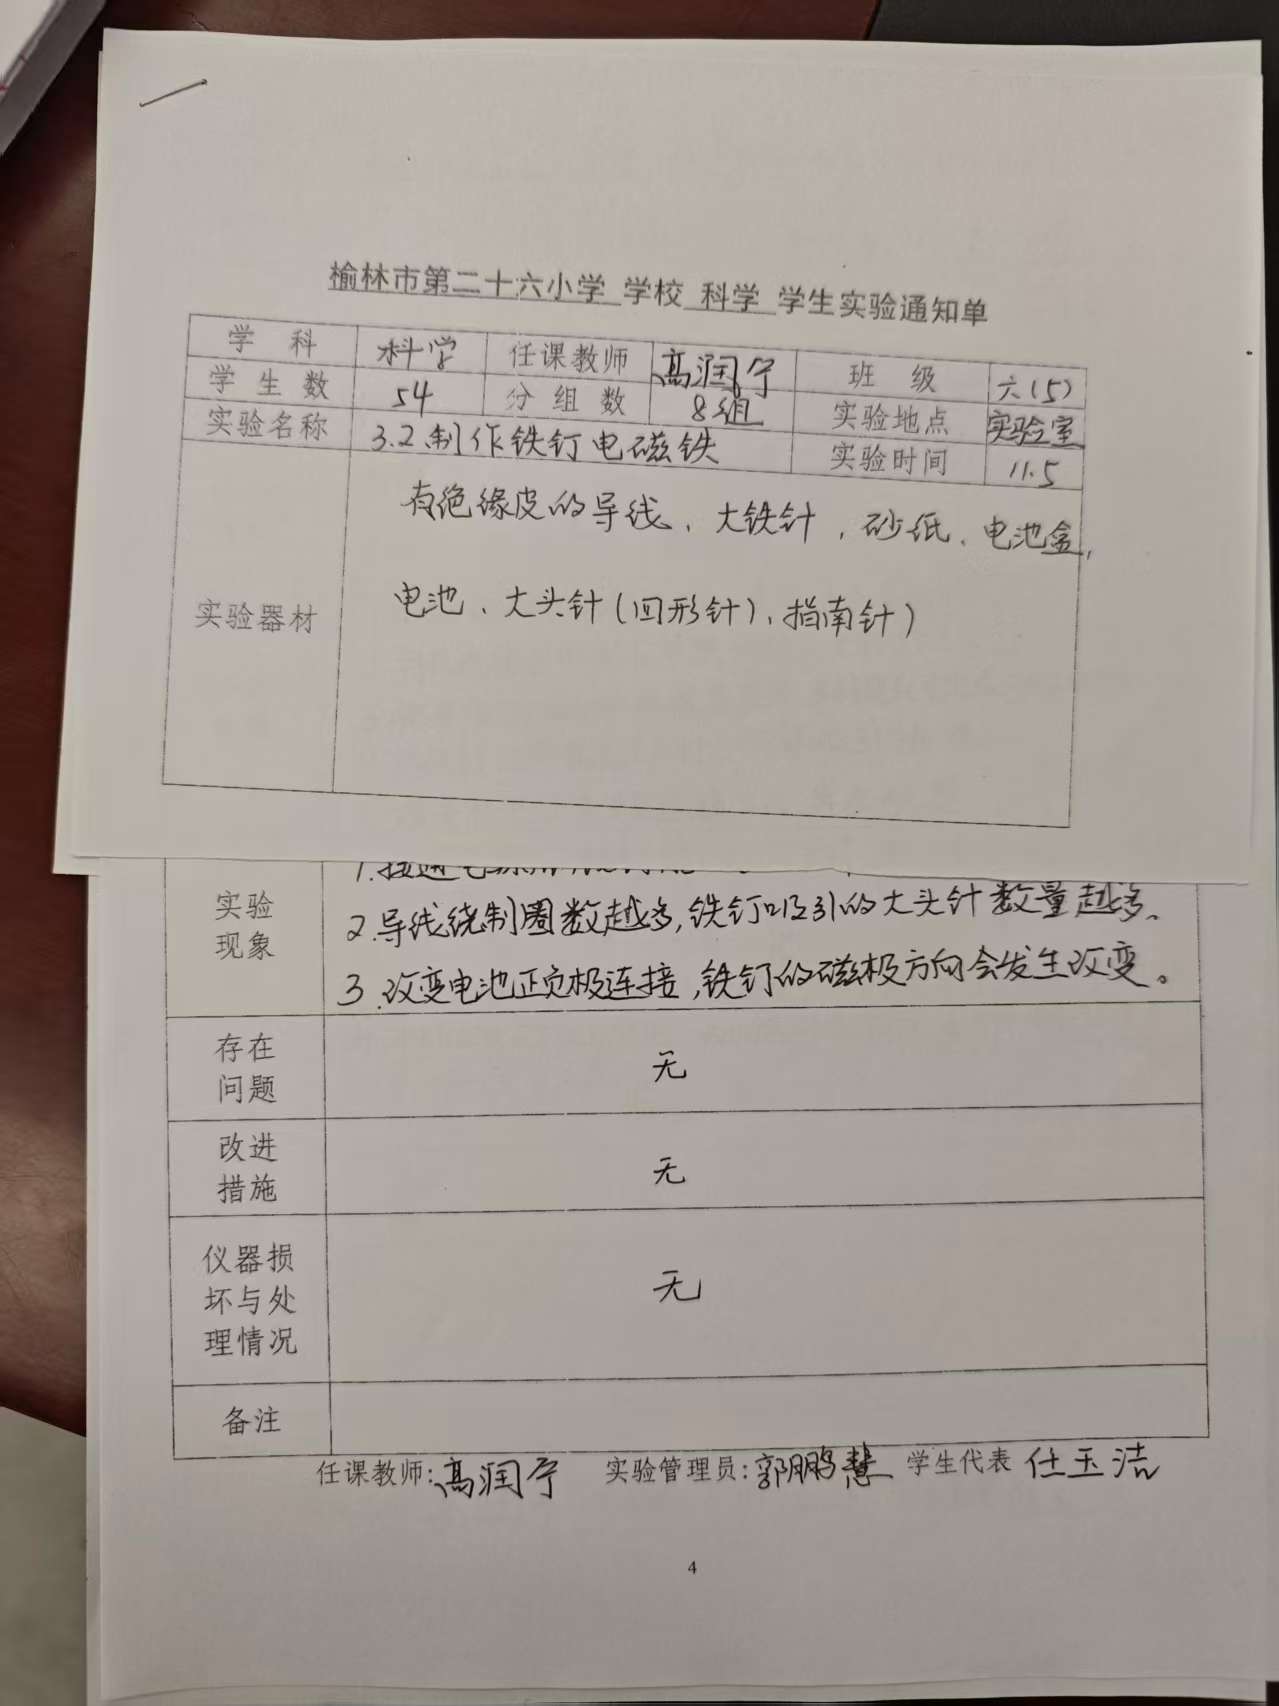 榆林市第二十六小学 学校 科学 学生实验通知单
学 科 科学 任课教师 高润宁 班 级 六(5)
学 生 数 54 分 组 数 8组 实验地点 实验室
实验名称 3.2制作铁钉电磁铁 实验时间 11.5
实验器材
有绝缘皮的导线、大铁针,砂纸、电池盒,
电池、大头针(回形针),指南针)
实验
现象
1.接通电
2.导线绕制圈数越多,铁钉吸引的大头针数量越多、
3.改变电池正负极连接,铁钉的磁极方向会发生改变。
存在
问题
无
改进
措施
无
仪器损
坏与处
理情况
无
备注
任课教师:高润宁 实验管理员:郭鹏慧 学生代表 任玉洁
4